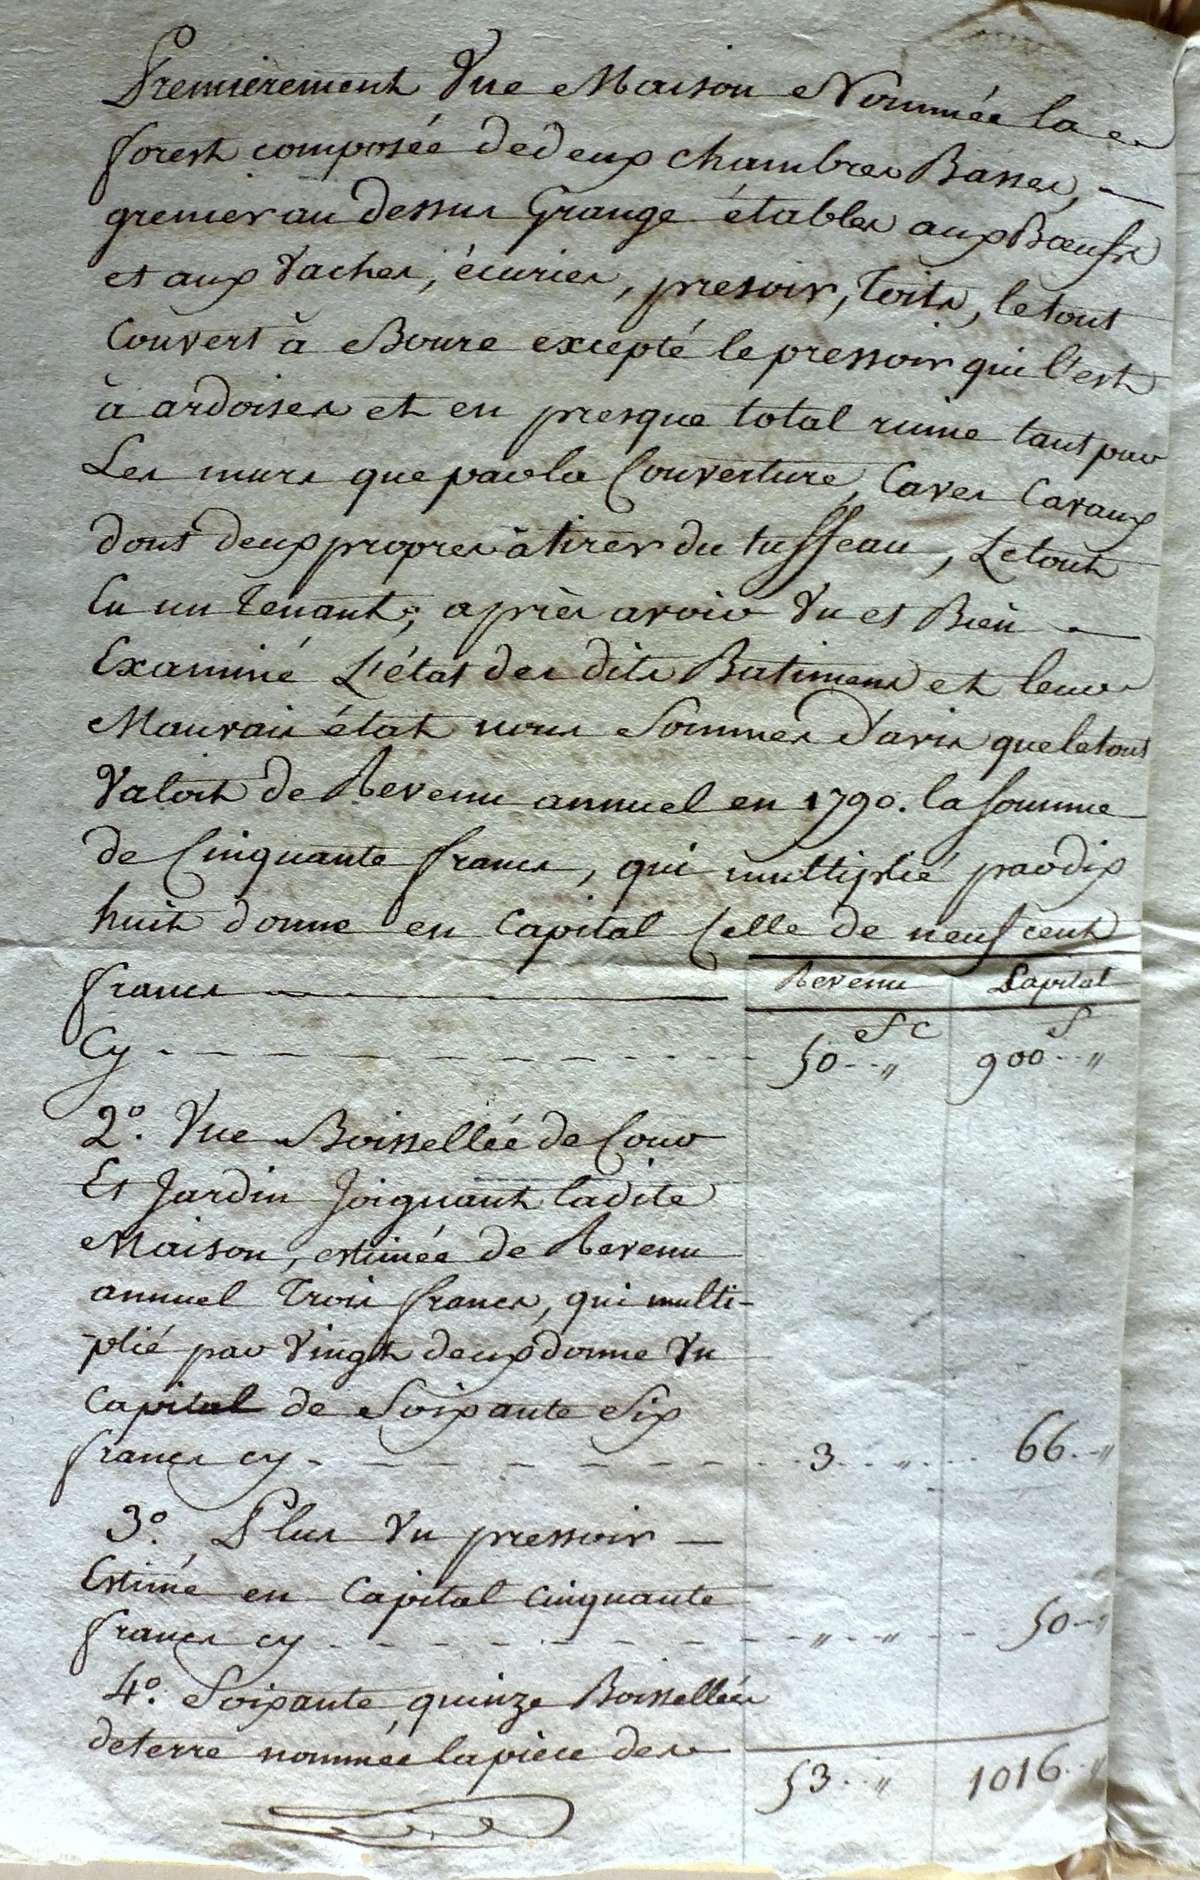 Premierement Vne Maison Nommée la
forest composée de deux chambres Basses,
grenier au dessus Grange étables aux Bœufs
et aux Vaches, écuries, presoir, Toits, le tout
Couvert à Boure excepté le pressoir qui l'est
à ardoises et en presque total ruine tant par
Les murs que par la Couverture, Caves Caraux
dont deux propres à tirer du tuffeau, Le tout
En un Tenant; après avoir Vu et Bien
Examiné L'état des dits Batimens et leurs
Mauvais état nous Sommes D'avis que le tout
Valoit de Revenu annuel en 1790. la somme
de Cinquante francs, qui multiplié par dix
huit donne en Capital Celle de neuf cent
francs Revenu Capital
Cy 50 f " c 900 f "
2°. Vne Boissellée de Cour
Et Jardin Joignant ladite
Maison, estimée de Revenu
annuel Trois francs, qui multi-
-plié par Vingt deux donne Vn
Capital de Soixante Six
francs cy 3 " 66 "
3°. Plus Vn pressoir
Estimé en Capital Cinquante
francs cy " " 50 "
4°. Soixante quinze Boissellées
de terre nommée la pièce des
53 " 1016 "